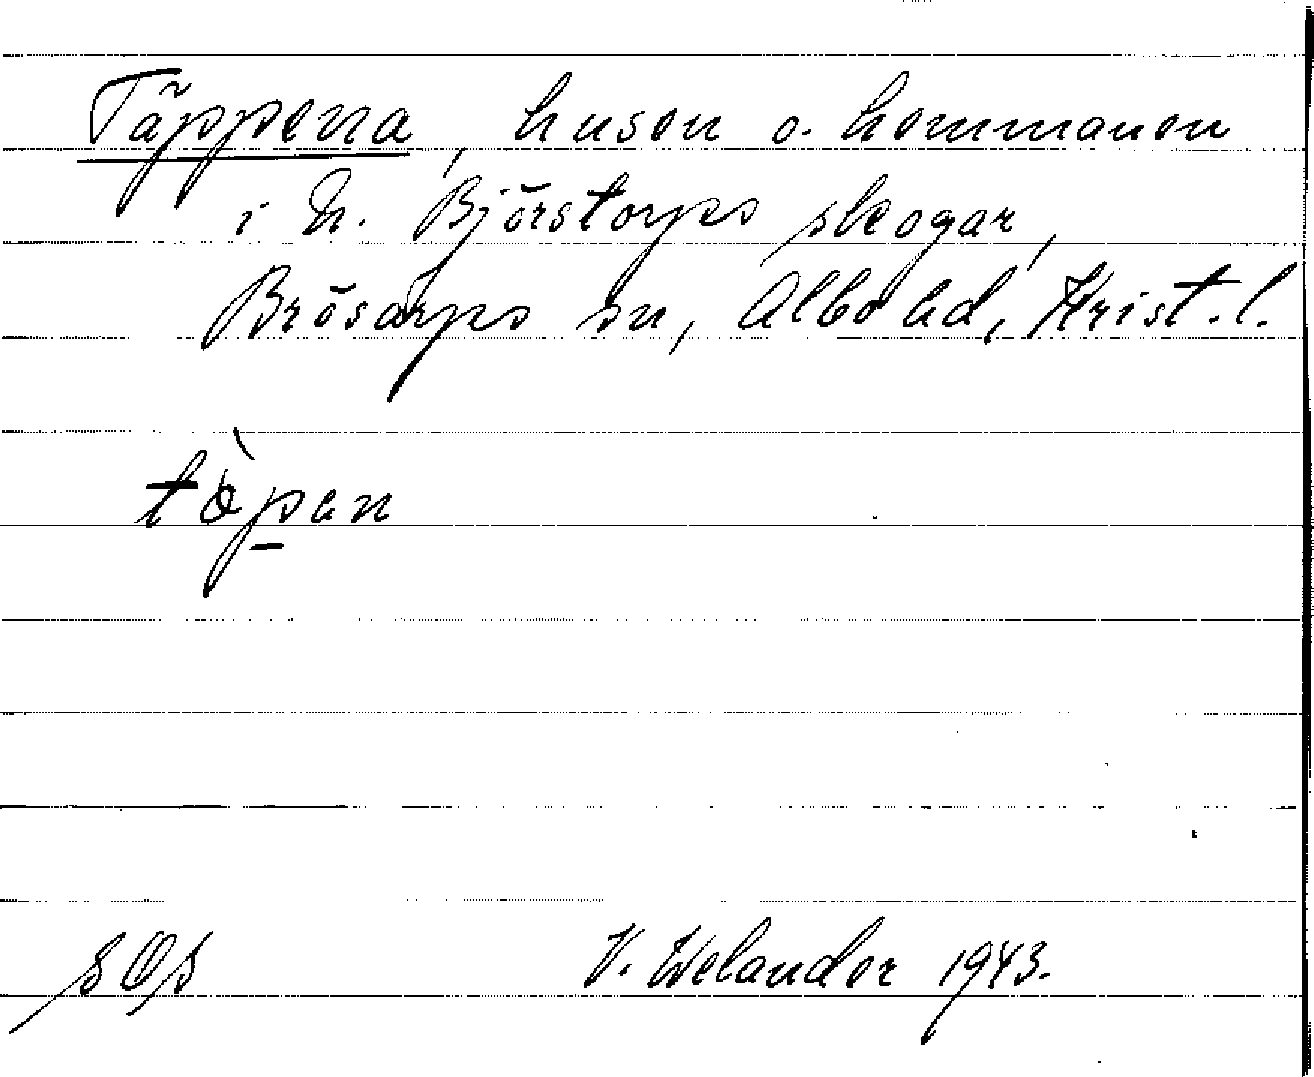 Täppena, husen o. hemmanen
i N. Björstorps skogar,
Brösarps sn, Albo hd, Krist. l.
V. Welander 1943.